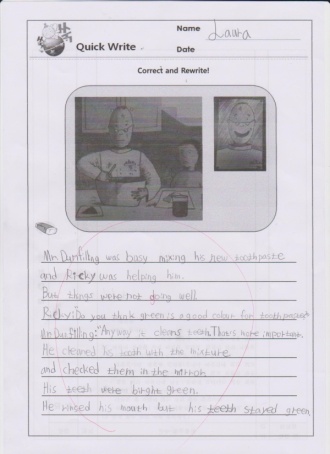 Name Laura
Quick Write
Date
Correct and Rewrite!
Mr. Durfilling was busy mixing his new toothpaste
and Ricky was helping him.
But things were not going well.
Ricky: Do you think green is a good colour for toothpaste
Mr Durfilling: "Anyway it cleans teeth. That's more important.
He cleaned his tooth with the mixture
and checked them in the mirror.
His teeth were bright green.
He rinsed his mouth but his teeth stayed green